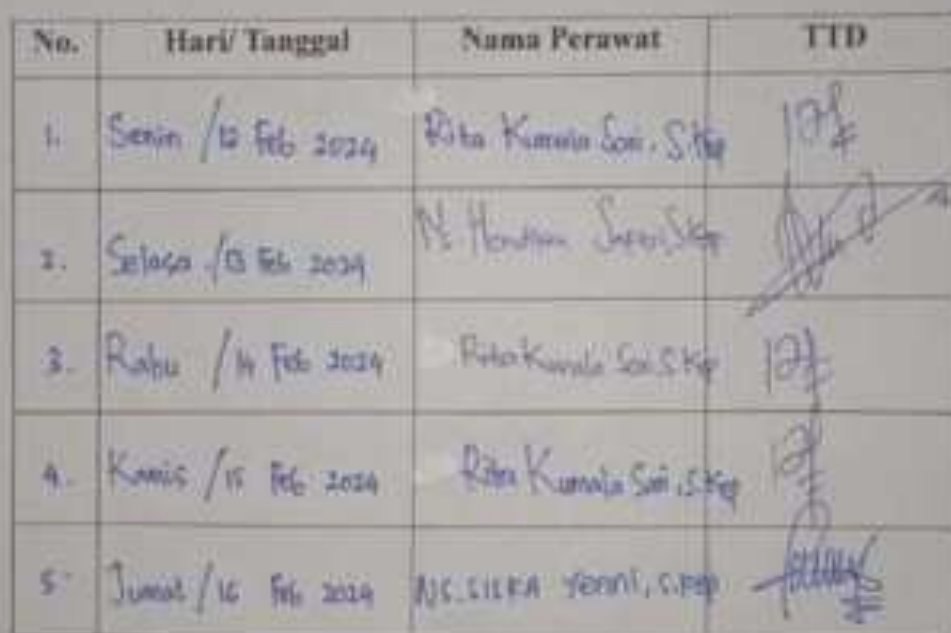 No. Hari/ Tanggal Nama Perawat TTD
1. Senin /12 Feb 2024 Rita Kumala Sari, S.Kep
2. Selasa /13 Feb 2024 S.Kep
3. Rabu /14 Feb 2024 Rita Kumala Sari, S.Kep
4. Kamis /15 Feb 2024 Rita Kumala Sari, S.Kep
5. Jumat /16 Feb 2024 NS. SISKA Yenni, S.Kep